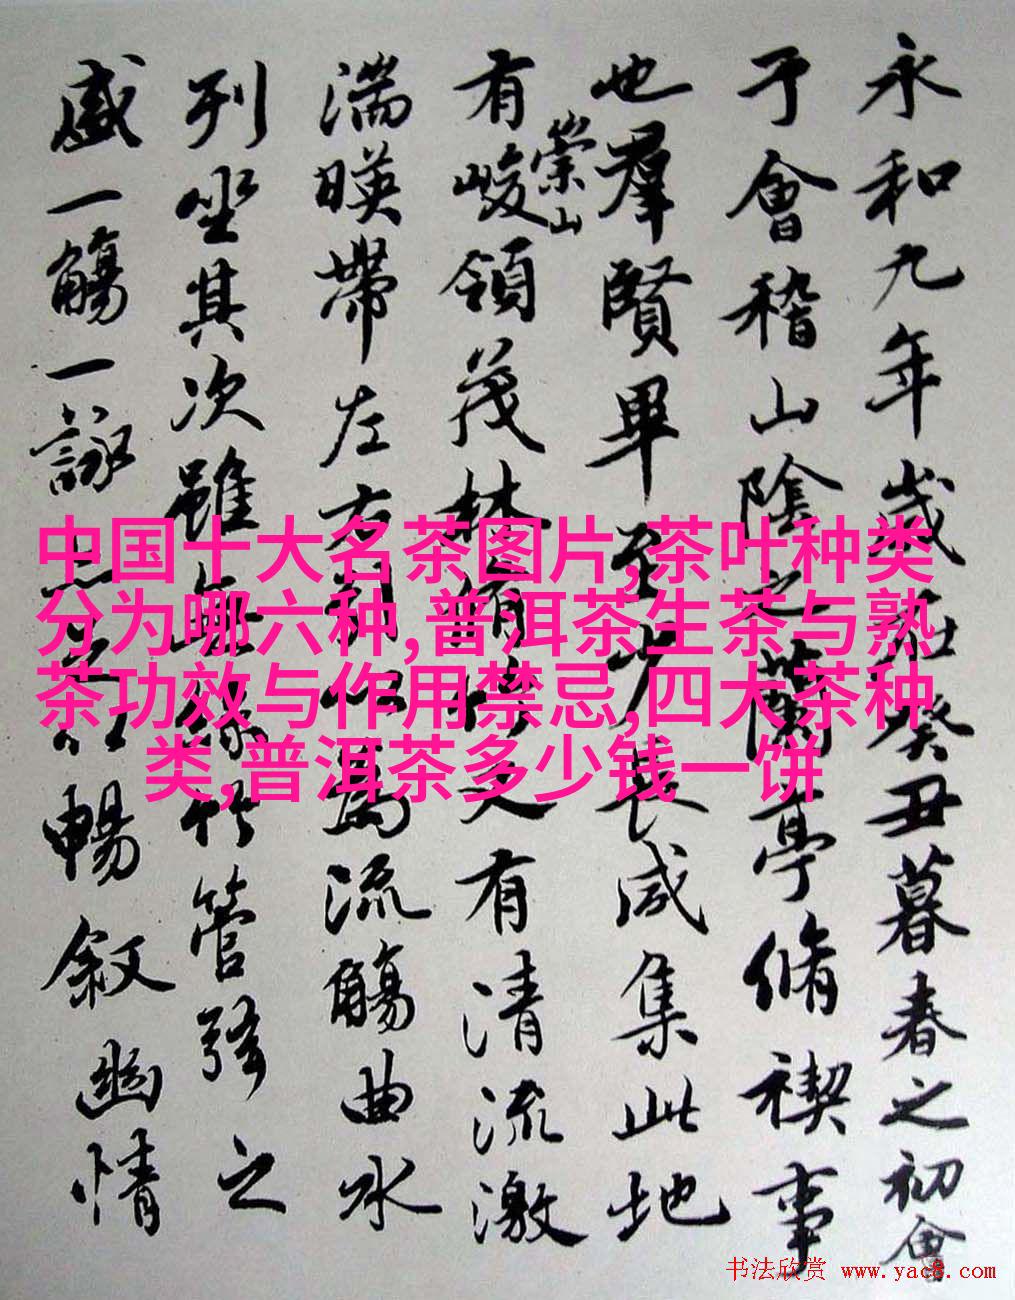 永和九年歲在癸丑暮春之初會
于會稽山陰之蘭亭脩禊事
也羣賢畢至少長咸集此地
有崇山峻領茂林脩竹又有清流激
湍暎帶左右引以為流觴曲水
列坐其次雖無絲竹管弦之
盛一觴一詠亦足以暢叙幽情
中国十大名茶图片,茶叶种类
分为哪六种,普洱茶生茶与熟
茶功效与作用禁忌,四大茶种
类,普洱茶多少钱一饼
书法欣赏 www.yac8.com